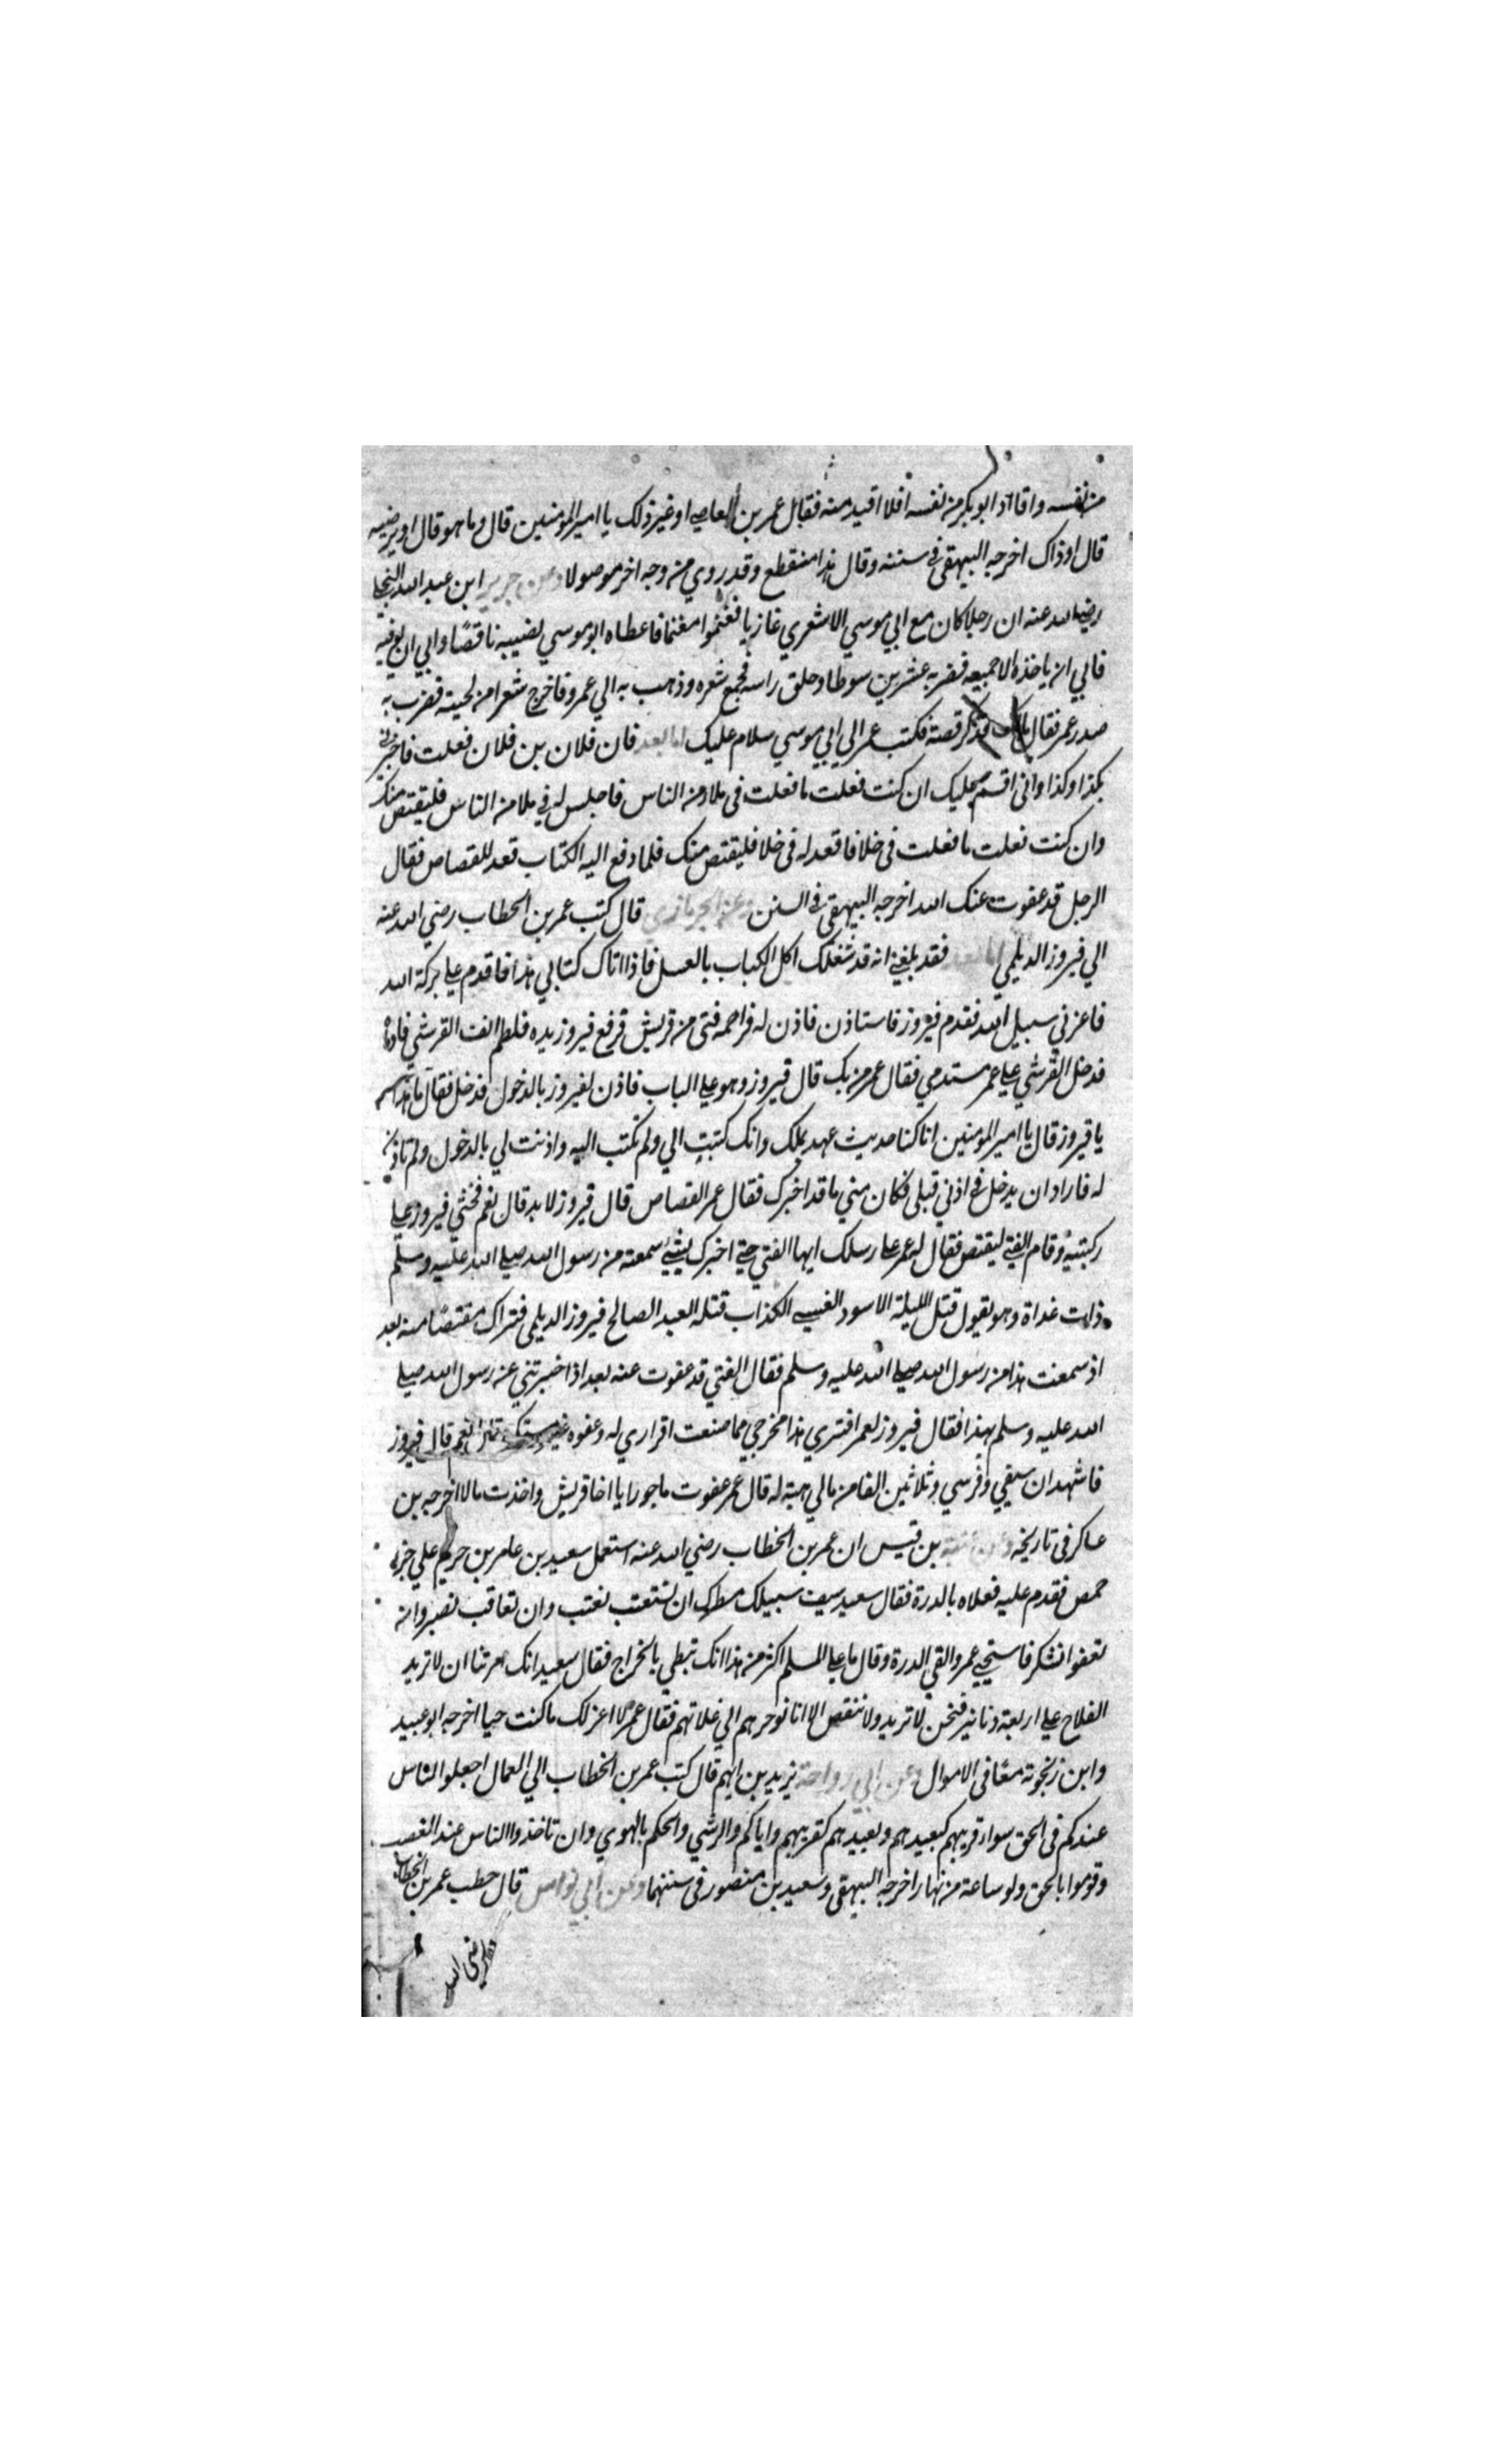 من نفسه واقاد ابو بكر من نفسه افلا اقيد منه فقال عمر بن العاصي او غير ذلك يا امير المؤمنين قال وما هو قال او يرضيه
قال او ذاك اخرجه البيهقي في سننه وقال هذا منقطع وقد روي من وجه اخر موصولا وعن جرير ابن عبد الله البجلي
رضي الله عنه ان رجلا كان مع ابي موسي الاشعري غازيا فغنموا مغنما فاعطاه ابو موسي نصيبه ناقصا وابي ان يوفيه
فابي ان ياخذه الا جميعه فضربه عشرين سوطا وحلق راسه فجمع شعره وذهب به الي عمر فاخرج شعرا من لحيته فضرب به
صدر عمر فقال مالك فذكر قصته فكتب عمر الي ابي موسي سلام عليك اما بعد فان فلان بن فلان فعلت فاخبرني
بكذا وكذا واني اقسم عليك ان كنت فعلت ما فعلت في ملاء من الناس فاجلس له في ملا من الناس فليقتص منك
وان كنت فعلت ما فعلت في خلا فاقعد له في خلا فليقتص منك فلما دفع اليه الكتاب قعد للقصاص فقال
الرجل قد عفوت عنك الله اخرجه البيهقي في السنن وعن الحرمازي قال كتب عمر بن الخطاب رضي الله عنه
الي فيروز الديلمي اما بعد فقد بلغني انه قد شغلك اكل الكباب بالعسل فاذا اتاك كتابي هذا فاقدم علي بركة الله
فاعز في سبيل الله فقدم فيروز فاستاذن فاذن له فزاحمه فتى من قريش فرفع فيروز يده فلطم انف القرشي فادماه
فدخل القرشي علي عمر مستدمي فقال عمر من بك قال فيروز وهو علي الباب فاذن لفيروز بالدخول فدخل فقال ما هذا
يا فيروز قال يا امير المؤمنين انا كنا حديث عهد بملك وانك كتبت الي ولم تكتب اليه واذنت لي بالدخول ولم تاذن
له فاراد ان يدخل في اذني قبلي فكان مني ما قد اخبرك فقال عمر القصاص قال فيروز لا بد قال نعم فجثي فيروز علي
ركبتيه وقام الفتي ليقتص فقال له عمر علي رسلك ايها الفتي حتي اخبرك بشيء سمعته من رسول الله صلي الله عليه وسلم
ذات غداة وهو يقول قتل الليلة الاسود العنسي الكذاب قتله العبد الصالح فيروز الديلمي فتراك مقتصا منه بعد
اذ سمعت هذا من رسول الله صلي الله عليه وسلم فقال الفتي قد عفوت عنه بعد اذ اخبرتني عن رسول الله صلي
الله عليه وسلم بهذا فقال فيروز لعمر افتري هذا مخرجي مما صنعت اقراري له وعفوه غير مستكره قال نعم قال فيروز
فاشهد ان سيفي وفرسي وثلاثين الفا من مالي هبة له قال عمر عفوت ماجورا يا اخا قريش واخذت مالا اخرجه بن
عساكر في تاريخه وعن عتبة بن قيس ان عمر بن الخطاب رضي الله عنه استعمل سعيد بن عامر بن حريم علي جزية
حمص فقدم عليه فعلاه بالدرة فقال سعيد سيف سبيلك مطرك ان تستعتب نعتب وان تعاقب نصبر وان
تعفوا نشكر فاستحيي عمر والقي الدرة وقال ما علي المسلم اكثر من هذا انك تبطي بالخراج فقال سعيد انك امرتنا ان لا نزيد
الفلاح علي اربعة دنانير فنحن لا نزيد ولا ننقص الا انا نوخرهم الي غلاتهم فقال عمر لا اعزلك ما كنت حيا اخرجه ابو عبيد
وابن زنجوته معا في الاموال وعن ابي رواحة يزيد بن ايهم قال كتب عمر بن الخطاب الي العمال اجعلوا الناس
عندكم في الحق سواء قريبهم كبعيدهم وبعيدهم كقريبهم واياكم والرشي والحكم بالهوي وان تاخذوا الناس عند الغضب
وقوموا بالحق ولو ساعة من نهار اخرجه البيهقي وسعيد بن منصور في سننهما وعن ابي فراس قال خطب عمر بن الخطاب
رضي الله